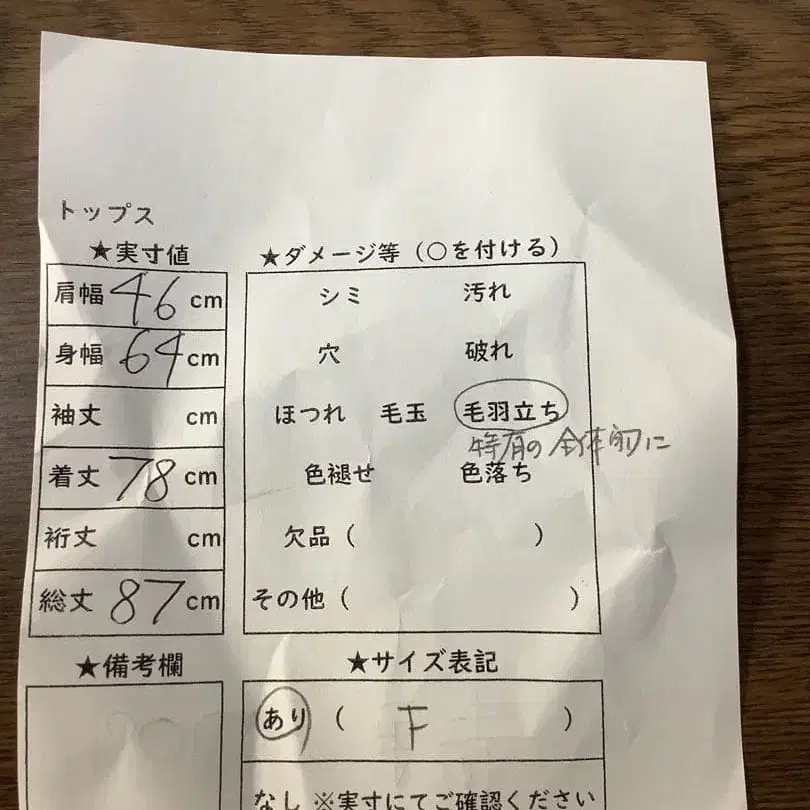 トップス
★実寸値
肩幅 46 cm
身幅 64 cm
袖丈 cm
着丈 78 cm
裄丈 cm
総丈 87 cm
★ダメージ等（○を付ける）
シミ 汚れ
穴 破れ
ほつれ 毛玉 毛羽立ち
特有の全体的に
色褪せ 色落ち
欠品（ ）
その他（ ）
★備考欄
★サイズ表記
あり（ F ）
なし ※実寸にてご確認ください